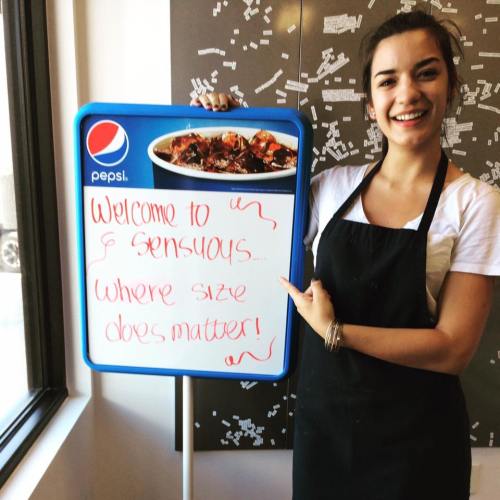 pepsi
Welcome to
& Sensuous...
Where size
does matter!